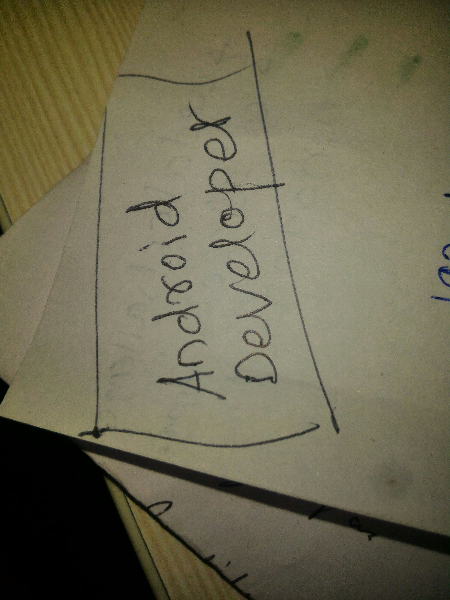 Android
Developer